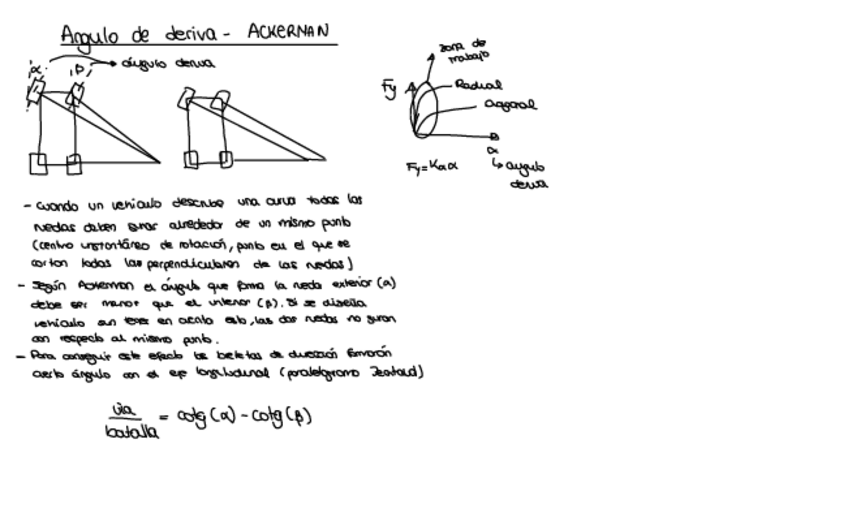 Angulo de deriva - ACKERMAN
α β → ángulo deriva
zona de trabajo
Fy
Radial
diagonal
α
↳ angulo deriva
Fy = Kα α
- Cuando un vehiculo describe una curva todas las
ruedas deben girar alrededor de un mismo punto
(centro instantáneo de rotación, punto en el que se
cortan todas las perpendiculares de las ruedas)
- Según Ackerman el ángulo que forma la rueda exterior (α)
debe ser menor que el interior (β). Si se diseña
vehiculo sin tener en cuenta esto, las dos ruedas no giran
con respecto al mismo punto.
- Para conseguir este efecto las bieletas de dirección formarán
cierto ángulo con el eje longitudinal (paralelogramo Jeantaud)
via / batalla = cotg (α) - cotg (β)